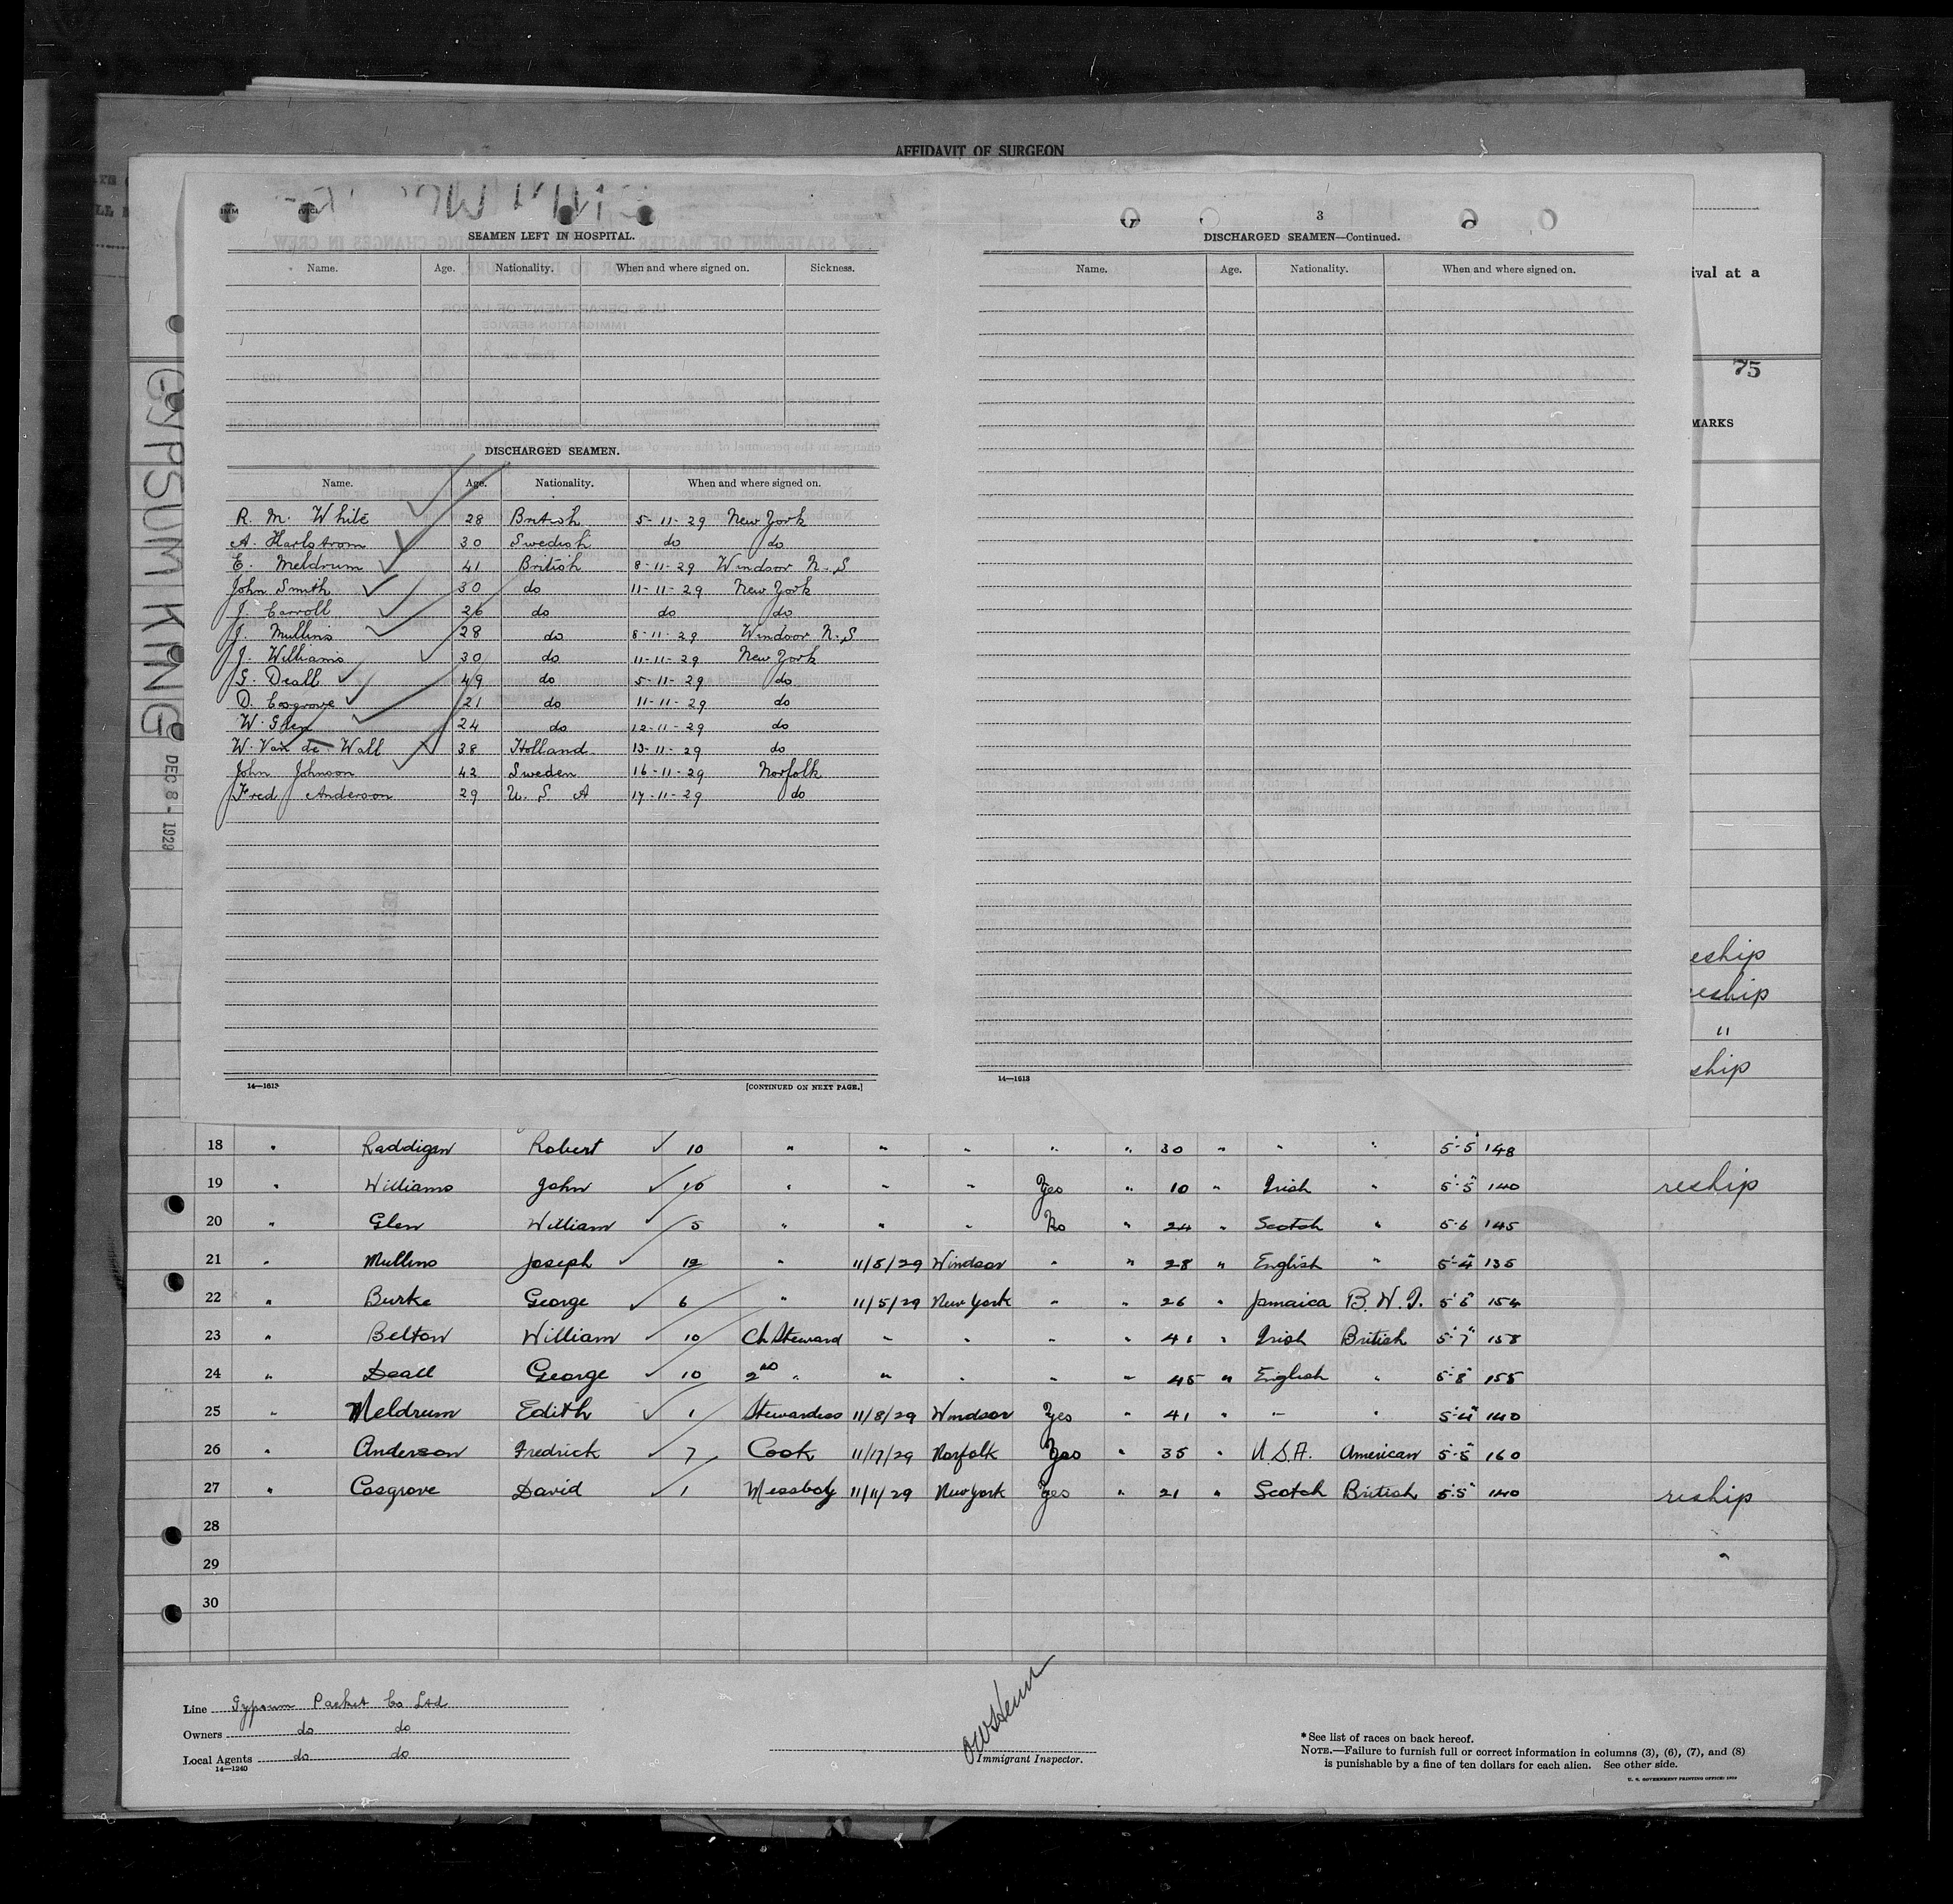 AFFIDAVIT OF SURGEON
3
SEAMEN LEFT IN HOSPITAL.
Name. Age. Nationality. When and where signed on. Sickness.
DISCHARGED SEAMEN.
Name. Age. Nationality. When and where signed on.
R. M. White 28 British 5-11-29 New York
A. Harlstrom 30 Swedish do do
E. Meldrum 41 British 8-11-29 Windsor N.S
John Smith 30 do 11-11-29 New York
J. Carroll 26 do do do
J. Mullins 28 do 8-11-29 Windsor N.S
J. Williams 30 do 11-11-29 New York
G. Deall 49 do 5-11-29 do
D. Cosgrove 21 do 11-11-29 do
W. Glen 24 do 12-11-29 do
W. Van de Wall 38 Holland 13-11-29 do
John Johnson 42 Sweden 16-11-29 Norfolk
Fred Anderson 29 U. S A 17-11-29 do
14—1613 [CONTINUED ON NEXT PAGE.]
DISCHARGED SEAMEN—Continued.
Name. Age. Nationality. When and where signed on.
14—1613
GYPSUM KING DEC 8 - 1929
ival at a
75
MARKS
eship
reship
"
ship
18 " Raddigan Robert 10 " " " " " 30 " " " 5-5 148
19 " Williams John 10 " " " Yes " 10 " Irish " 5-5 140 reship
20 " Glen William 5 " " " No " 24 " Scotch " 5-6 145
21 " Mullins Joseph 12 " 11/8/29 Windsor " " 28 " English " 5-4 135
22 " Burke George 6 " 11/5/29 New York " " 26 " Jamaica B.W.I. 5-6 154
23 " Belton William 10 Ch Steward " " " " 41 " Irish British 5-7 158
24 " Deall George 10 2nd " " " " " 45 " English " 5-8 155
25 " Meldrum Edith 1 Stewardess 11/8/29 Windsor Yes " 41 " " " 5-4 140
26 " Anderson Fredrick 7 Cook 11/17/29 Norfolk Yes " 35 " U.S.A. American 5-5 160
27 " Cosgrove David 1 Messboy 11/11/29 New York Yes " 21 " Scotch British 5-5 140 reship
28
29 "
30
Line Gypsum Packet Co Ltd
Owners do do
Local Agents do do
14—1240
Immigrant Inspector.
* See list of races on back hereof.
NOTE.—Failure to furnish full or correct information in columns (3), (6), (7), and (8)
is punishable by a fine of ten dollars for each alien. See other side.